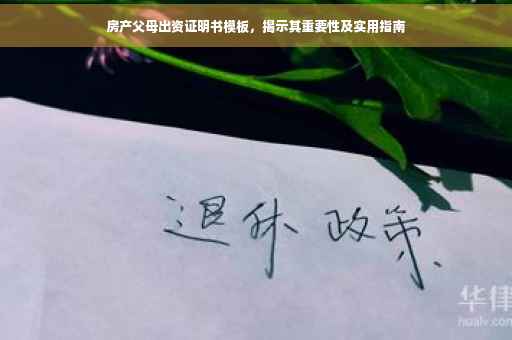 房产父母出资证明书模板，揭示其重要性及实用指南
退休 政策
华律
hualv.com